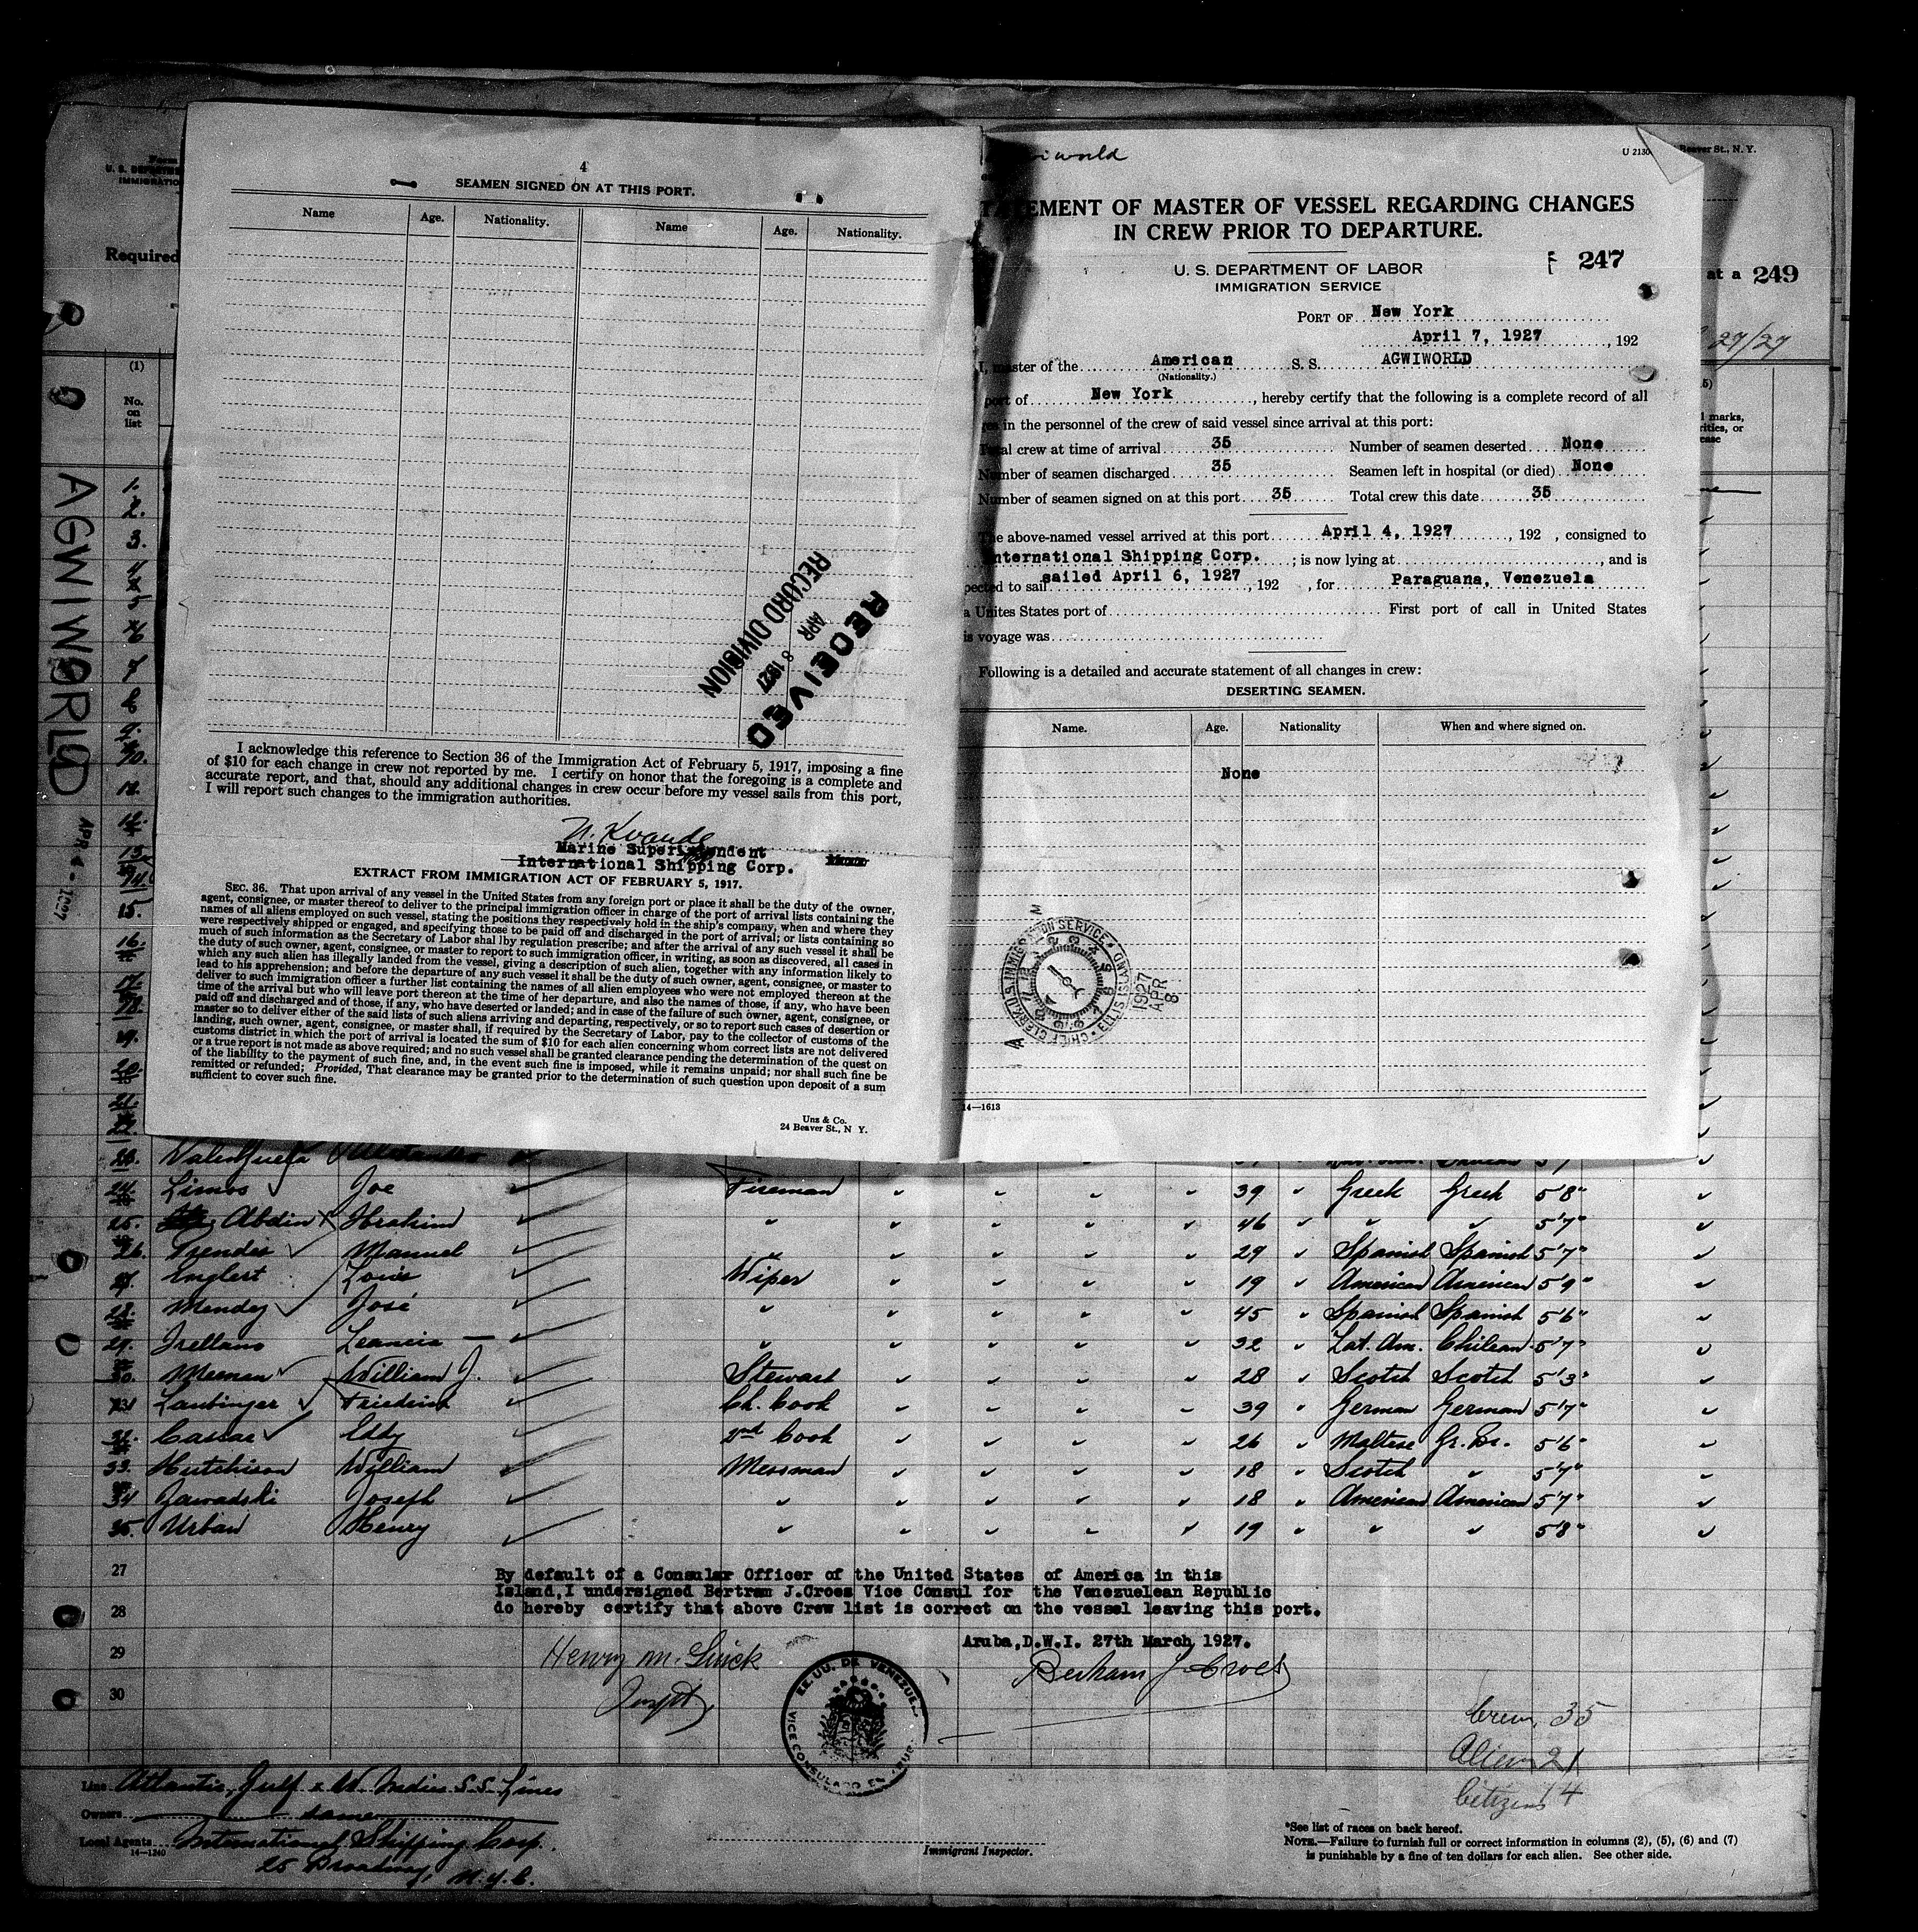 4
SEAMEN SIGNED ON AT THIS PORT.
Name Age. Nationality. Name Age. Nationality.
RECEIVED
APR 8 1927
RECORD DIVISION
I acknowledge this reference to Section 36 of the Immigration Act of February 5, 1917, imposing a fine
of $10 for each change in crew not reported by me. I certify on honor that the foregoing is a complete and
accurate report, and that, should any additional changes in crew occur before my vessel sails from this port,
I will report such changes to the immigration authorities.
Marine Superintendent
International Shipping Corp.
EXTRACT FROM IMMIGRATION ACT OF FEBRUARY 5, 1917.
SEC. 36. That upon arrival of any vessel in the United States from any foreign port or place it shall be the duty of the owner,
agent, consignee, or master thereof to deliver to the principal immigration officer in charge of the port of arrival lists containing the
names of all aliens employed on such vessel, stating the positions they respectively hold in the ship's company, when and where they
were respectively shipped or engaged, and specifying those to be paid off and discharged in the port of arrival; or lists containing so
much of such information as the Secretary of Labor shal lby regulation prescribe; and after the arrival of any such vessel it shall be
the duty of such owner, agent, consignee, or master to report to such immigration officer, in writing, as soon as discovered, all cases in
which any such alien has illegally landed from the vessel, giving a description of such alien, together with any information likely to
lead to his apprehension; and before the departure of any such vessel it shall be the duty of such owner, agent, consignee, or master to
deliver to such immigration officer a further list containing the names of all alien employees who were not employed thereon at the
time of the arrival but who will leave port thereon at the time of her departure, and also the names of those, if any, who have been
paid off and discharged and of those, if any, who have deserted or landed; and in case of the failure of such owner, agent, consignee, or
master so to deliver either of the said lists of such aliens arriving and departing, respectively, or so to report such cases of desertion or
landing, such owner, agent, consignee, or master shall, if required by the Secretary of Labor, pay to the collector of customs of the
customs district in which the port of arrival is located the sum of $10 for each alien concerning whom correct lists are not delivered
or a true report is not made as above required; and no such vessel shall be granted clearance pending the determination of the quest on
of the liability to the payment of such fine, and, in the event such fine is imposed, while it remains unpaid; nor shall such fine be
remitted or refunded; Provided, That clearance may be granted prior to the determination of such question upon deposit of a sum
sufficient to cover such fine.
Unz & Co.
24 Beaver St., N Y.
iworld
U 2130
TATEMENT OF MASTER OF VESSEL REGARDING CHANGES
IN CREW PRIOR TO DEPARTURE.
U. S. DEPARTMENT OF LABOR
IMMIGRATION SERVICE
247
PORT OF New York
April 7, 1927, 192
I, master of the American S. S. AGWIWORLD
(Nationality.)
port of New York, hereby certify that the following is a complete record of all
ges in the personnel of the crew of said vessel since arrival at this port:
Total crew at time of arrival 35 Number of seamen deserted None
Number of seamen discharged 35 Seamen left in hospital (or died) None
Number of seamen signed on at this port 35 Total crew this date 35
The above-named vessel arrived at this port April 4, 1927, 192 , consigned to
International Shipping Corp. ; is now lying at , and is
pected to sail sailed April 6, 1927, 192 , for Paraguana, Venezuela
a Unites States port of First port of call in United States
is voyage was
Following is a detailed and accurate statement of all changes in crew:
DESERTING SEAMEN.
Name. Age. Nationality When and where signed on.
None
CHIEF CLERK U.S. IMMIGRATION SERVICE ELLIS ISLAND
1927 APR 8
14—1613
Form
U. S. DEPARTME
IMMIGRATIO
Required
Beaver St., N. Y.
at a 249
27/27
(1)
No.
on
list
marks,
AGWIWORLD
APR 4 - 1927
1.
2.
3.
4
5
6
7
8
9.
10.
11.
12.
13
14.
15.
16.
17.
18.
19.
20.
21.
23. Valenzuela
24. Limos Joe Fireman 39 Greek Greek 5'8"
25. Abdin Ibrahim " 46 " " 5'7"
26. Manuel " 29 Spanish Spanish 5'7"
27. Englert Louis Wiper 19 American American 5'9"
28. Mendez José " 45 Spanish Spanish 5'6"
29. 32 Lat. Am. Chilean 5'7"
30. William J. Stewart 28 Scotch Scotch 5'3"
31 Laubinger Friedrich Ch. Cook 39 German German 5'7"
32. Eddy 2nd Cook 26 Maltese Gr. Br. 5'6"
33. Hutchison William Messman 18 Scotch " 5'7"
34 Zawadski Joseph " 18 American American 5'7"
35. Urban Henry " 19 " " 5'8"
27
28
29
30
By default of a Consular Officer of the United States of America in this
Island, I undersigned Bertram J.Croes Vice Consul for the Venezuelean Republic
do hereby certify that above Crew list is correct on the vessel leaving this port.
Aruba, D.W.I. 27th March 1927.
Bertram J Croes
EE. UU. DE VENEZUELA
VICE CONSULADO EN ARUBA
Crew 35
Alien 21
Citizens 14
Line Atlantic, Gulf & W. Indies S.S. Lines
Owners same
Local Agents International Shipping Corp.
14—1240
25 Broadway, N.Y.C.
Immigrant Inspector.
*See list of races on back hereof.
NOTE.—Failure to furnish full or correct information in columns (2), (5), (6) and (7)
is punishable by a fine of ten dollars for each alien. See other side.